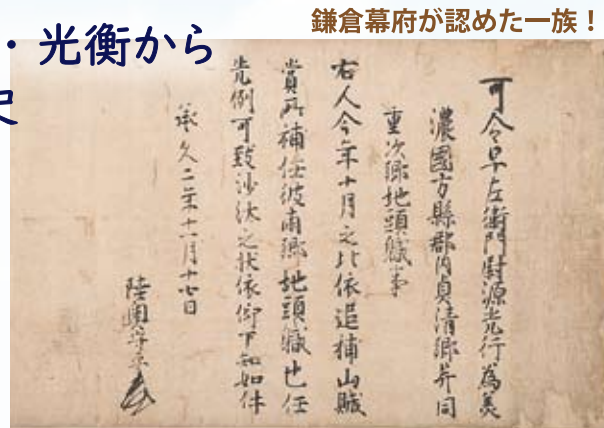 鎌倉幕府が認めた一族！
・光衡から
史
可令早左衛門尉源光行為美
濃國方縣郡内貞清郷并同
重次郷地頭職事
右人今年十月之比依追捕山賊
賞所補任彼両郷地頭職也任
先例可致沙汰之状依仰下知如件
承久二年十二月十七日
陸奥守平